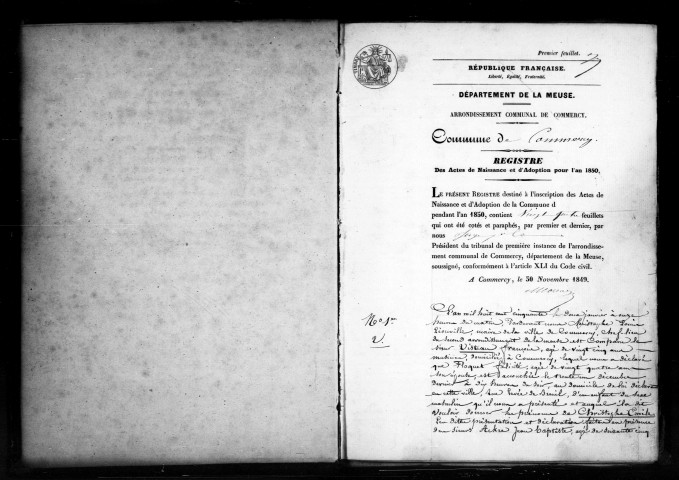 Premier feuillet.
RÉPUBLIQUE FRANÇAISE.
Liberté, Égalité, Fraternité.
DÉPARTEMENT DE LA MEUSE.
ARRONDISSEMENT COMMUNAL DE COMMERCY.
Commune de Commercy
REGISTRE
Des Actes de Naissance et d'Adoption pour l'an 1850.
LE PRÉSENT REGISTRE destiné à l'inscription des Actes de
Naissance et d'Adoption de la Commune d
pendant l'an 1850, contient Vingt feuillets
qui ont été cotés et paraphés, par premier et dernier, par
nous
Président du tribunal de première instance de l'arrondisse-
ment communal de Commercy, département de la Meuse,
soussigné, conformément à l'article XLI du Code civil.
A Commercy, le 30 Novembre 1849.
N° 1er
L'an mil huit cent cinquante le deux janvier à onze
heures du matin, Pardevant nous
Liouville, maire de la ville de Commercy, chef lieu
du second arrondissement de la meuse est Comparu le
sieur François, agé de vingt cinq ans
domicilié à Commercy, lequel nous a déclaré
que Floquet félicité, agée de vingt quatre ans
son épouse, est accouchée le trente un décembre
dernier à dix heures du soir, au domicile de lui déclarant
en cette ville, d'un enfant de sexe
masculin qu'il nous a présenté et auquel il a dit
vouloir donner les prénoms de Christophe Camile
Les dites présentation et déclaration faites en présence
des sieurs Jean Baptiste, agé de soixante cinq